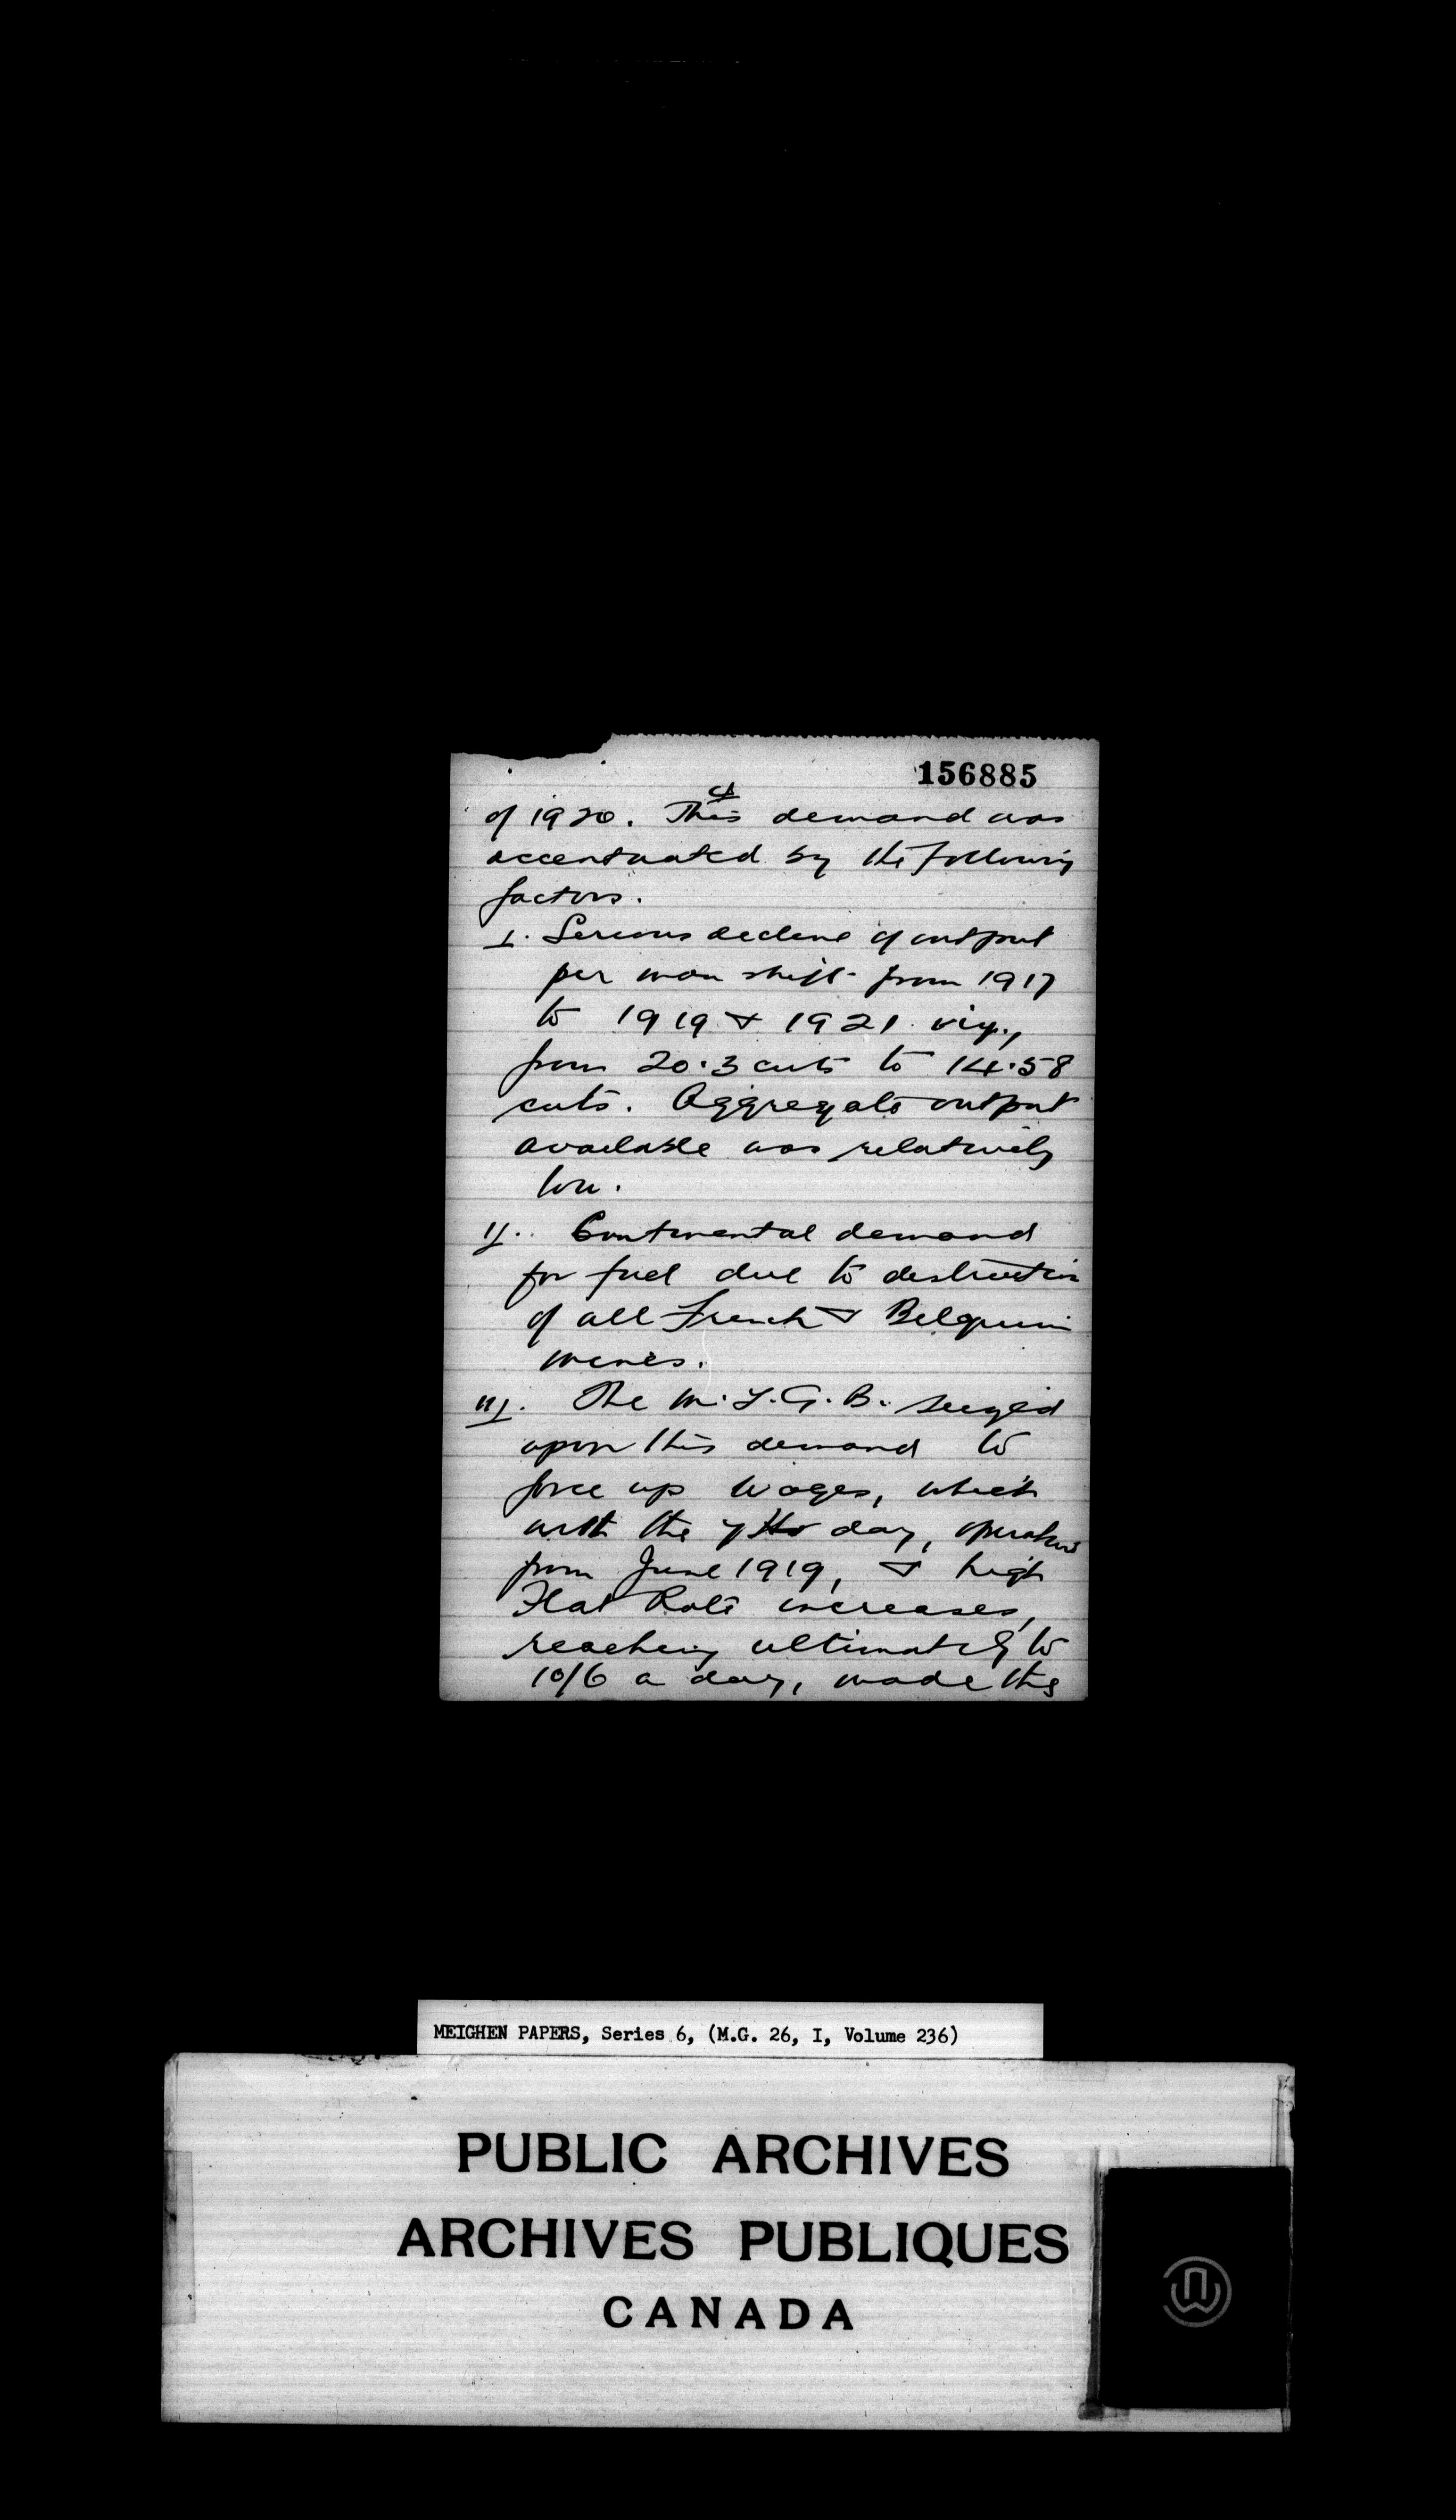 156885
4
of 1920. This demand was
accentuated by the following
factors.
I. Serious decline of output
per man shift from 1917
to 1919 & 1921 viz.,
from 20.3 cwts to 14.58
cwts. Aggregate output
available was relatively
low.
II. Continental demand
for fuel due to destruction
of all French & Belgium
mines.
III. The M.F.G.B. seized
upon this demand to
force up wages, which
with the 7 Hr day, operative
from June 1919, & high
Flat Rate increases,
reaching ultimately to
10/6 a day, made the
MEIGHEN PAPERS, Series 6, (M.G. 26, I, Volume 236)
PUBLIC ARCHIVES
ARCHIVES PUBLIQUES
CANADA